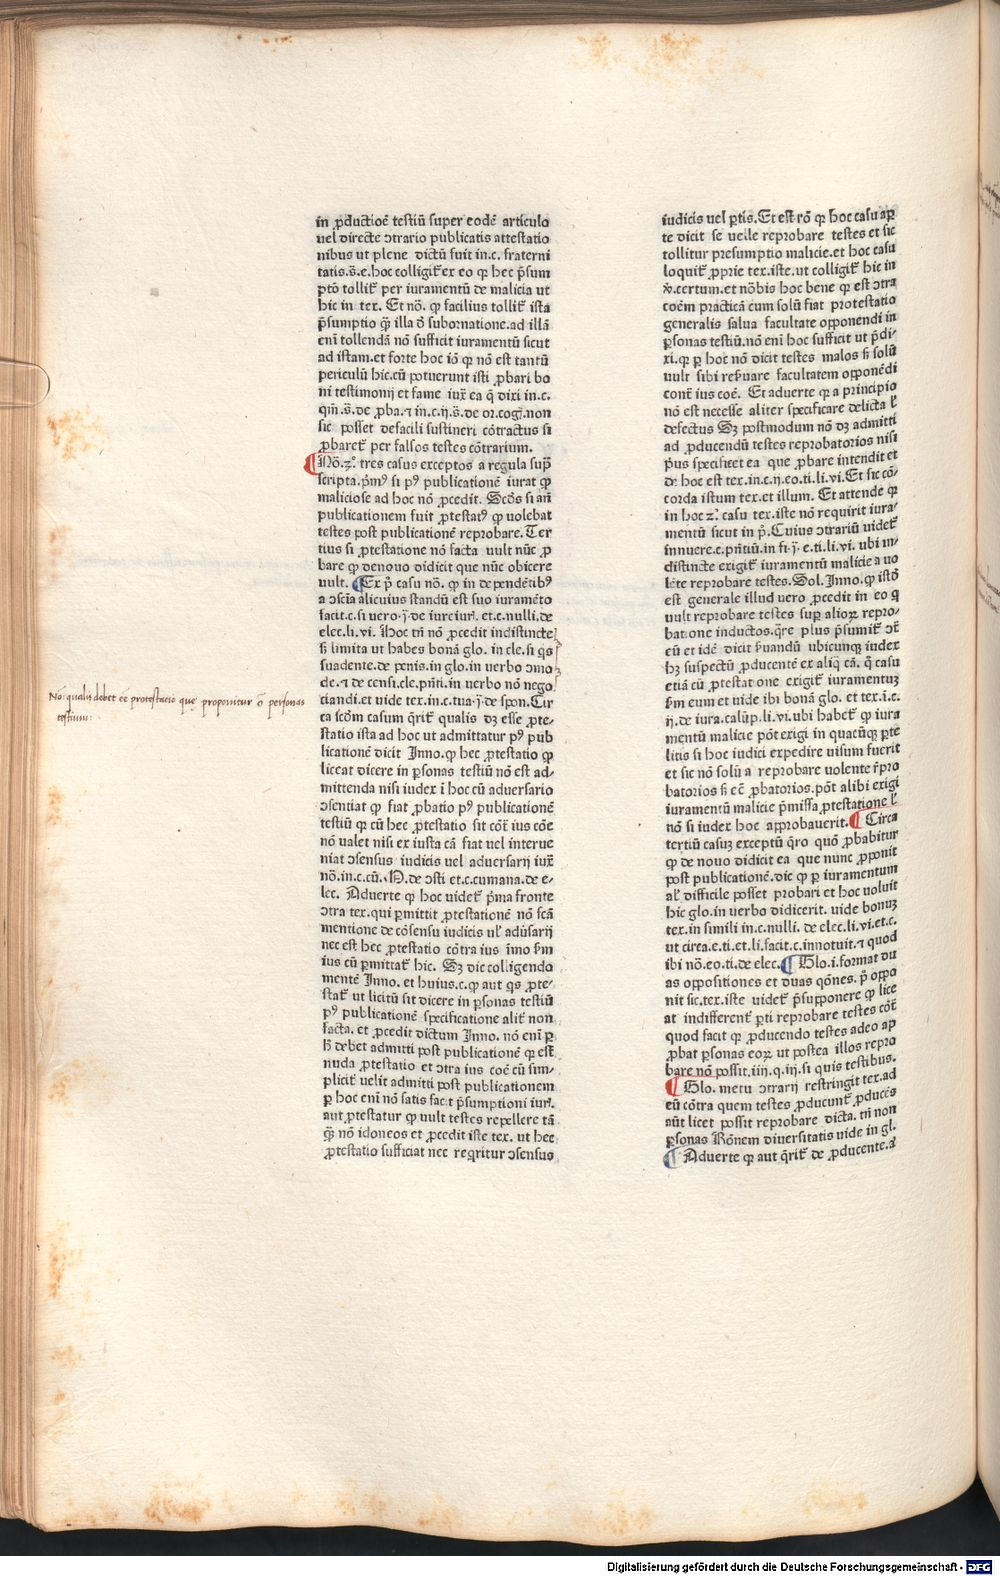 in ꝓductioē testiū super eodē articulo
uel directe ↄtrario publicatis attestatio
nibus ut plene dictū fuit in.c. fraterni
tatis.s̄.e.hoc colligit᷑ ex eo ꝙ hec p̄sum
ptō tollit᷑ per iuramentū de malicia ut
hic in tex. Et nō. ꝙ facilius tollit᷑ ista
p̄sumptio q̄ꝫ illa d̄ subornatione.ad illā
enī tollendā nō sufficit iuramentū sicut
ad istam.et forte hoc iō ꝙ nō est tantū
periculū hic.cū potuerunt isti ꝓbari bo
ni testimonij et fame iux̄ ea q̄ dixi in.c.
qm̄.s̄.de ꝓba.⁊ in.c.ij.s̄.de or.cog.non
sic posset defacili sustineri cōtractus si
ꝓbaret᷑ per falsos testes cōtrarium.
¶ Nō.2°. tres casus exceptos a regula sup̄
scripta.p̄mꝰ si pꝰ publicationē iurat ꝙ
maliciose ad hoc nō ꝓcedit. Scd̄s si an̄
publicationem fuit ꝓtestatꝰ ꝙ uolebat
testes post publicationē reprobare. Ter
tius si ꝓtestatione nō facta uult nūc ꝓ
bare ꝙ denouo didicit que nūc obicere
uult. ¶ Ex p̄ casu nō. ꝙ in dependētibꝰ
a ↄscīa alicuius standū est suo iuramēto
facit.c.si vero.j.de iureiur. et.c.nulli.de
elec.li.vi. Hoc tn̄ nō ꝓcedit indistincte
s̄ limita ut habes bonā glo. in cle.si qs
suadente.de penis.in glo.in verbo ↄmo
de.⁊ de censi.cle.pn̄ti.in verbo nō nego
ciandi.et uide tex.in.c.tua.j.de spon.Cir
ca scd̄m casum q̄rit᷑ qualis dꝫ esse ꝓte-
statio ista ad hoc ut admittatur pꝰ pub
licationē dicit Inno.ꝙ hec ꝓtestatio ꝙ
liceat dicere in ꝑsonas testiū nō est ad-
mittenda nisi iudex ī hoc cū aduersario
ↄsentiat ꝙ fiat ꝓbatio pꝰ publicationē
testiū ꝙ cū hec ꝓtestatio sit cōt᷑ ius cōe
nō valet nisi ex iusta cā fiat vel interue
niat ↄsensus iudicis uel aduersarij iux̄
nō.in.c.cū.M.de ↄsti et.c.cumana.de e-
lec. Aduerte ꝙ hoc uidet᷑ p̄ma fronte
ↄtra tex.qui ꝑmittit ꝓtestationē nō fcā
mentione de cōsensu iudicis ul̄ adūsarij
nec est hec ꝓtestatio cōtra ius īmo ẜm
ius cū ꝑmittat᷑ hic. Sꝫ dic colligendo
mentē Inno. et huius.c.ꝙ aut qs ꝓte-
stat᷑ ut licitū sit dicere in ꝑsonas testiū
pꝰ publicationē specificatione alit᷑ non
facta. et ꝓcedit dictum Inno. nō enī ꝑ
h̄ debet admitti post publicationē ꝙ est
nuda ꝓtestatio et ↄtra ius coē cū sim-
plicit᷑ velit admitti post publicationem
ꝑ hoc enī nō satis facit p̄sumptioni iur.
aut ꝓtestatur ꝙ uult testes repellere tā
q̄ꝫ nō idoneos et ꝓcedit iste tex. ut hec
ꝓtestatio sufficiat nec reqritur ↄsensus
Nō: qualis debet eē protestacio quę proponitur ō personas
testium:
iudicis uel ꝑtis.Et est rō ꝙ hoc casu aꝑ
te dicit se uelle reprobare testes et sic
tollitur presumptio malicie.et hoc casu
loquit᷑ ꝓprie tex.iste.ut colligit᷑ hic in
v̄.certum.et nōbis hoc bene ꝙ est ↄtra
coēm practicā cum solū fiat protestatio
generalis salua facultate opponendi in
ꝑsonas testiū.nō enī hoc sufficit ut p̄di-
xi.ꝙ ꝑ hoc nō dicit testes malos s̄ solū
uult sibi reẜuare facultatem opponēdi
cont᷑ ius coē. Et aduerte ꝙ a principio
nō est necesse aliter specificare delicta l̄
defectus Sꝫ postmodum nō dꝫ admitti
ad ꝓducendū testes reprobatorios nisi
pͥus specificet ea que ꝓbare intendit et
de hoc est tex.in.c.ij.eo.ti.li.vi.Et sic cō-
corda istum tex.et illum. Et attende ꝙ
in hoc 2°. casu tex.iste nō requirit iura-
mentū sicut in p̄.Cuius ↄtrariū uidet᷑
innuere.c.pn̄tiū.in fi.j.e.ti.li.vi. ubi in-
distincte exigit᷑ iuramentū malicie a uo
lēte reprobare testes.Sol.Inno.ꝙ istō
est generale illud uero ꝓcedit in eo ꝙ
uult reprobare testes suꝑ alioꝝ repro-
batione inductos.q̄re plus p̄sumit᷑ ↄt᷑
eū et idē dicit ẜuandū ubicunqꝫ iudex
hꝫ suspectū ꝓducentē ex aliq̄ cā. q̄ casu
etiā cū ꝓtestatione exigit᷑ iuramentuꝫ
ẜm eum et uide ibi bonā glo. et tex.i.c.
ij.de iura.calūp.li.vi.ubi habet᷑ ꝙ iura
mentū malicie pōt exigi in quacūqꝫ ꝑte
litis si hoc iudici expedire uisum fuerit
et sic nō solū a reprobare uolente rͣpro
batorios s̄ eē ꝓbatorios.pōt alibi exigi
iuramentū malicie p̄missa ꝓtestatione l̄
nō si iudex hoc approbauerit. ¶ Circa
tertiū casuꝫ exceptū q̄ro quō ꝓbabitur
ꝙ de nouo didicit ea que nunc ꝓponit
post publicationē.dic ꝙ ꝑ iuramentum
al̄ difficile posset probari et hoc uoluit
hic glo.in uerbo didicerit. uide bonuꝫ
tex.in simili in.c.nulli. de elec.li.vi.et.c.
ut circa.e.ti.et.li.facit.c.innotuit.⁊ quod
ibi nō.eo.ti.de elec. ¶ Glo.i.format du
as oppositiones et duas qōnes. p̄ oppo
nit sic.tex.iste uidet᷑ p̄supponere ꝙ lice
at indifferent᷑ ꝑti reprobare testes cōt᷑
quod facit ꝙ ꝓducendo testes adeo ap
ꝓbat ꝑsonas eoꝝ ut postea illos repro
bare nō possit.iiij.q.iij.si quis testibus.
¶ Glo. metu ↄtrarij restringit tex.ad
eū cōtra quem testes ꝓducunt᷑ ꝓducēs
aūt licet possit reprobare dicta. tn̄ non
ꝑsonas Rōnem diuersitatis uide in gl.
¶ Aduerte ꝙ aut q̄rit᷑ de ꝓducente.a
Digitalisierung gefördert durch die Deutsche Forschungsgemeinschaft - DFG